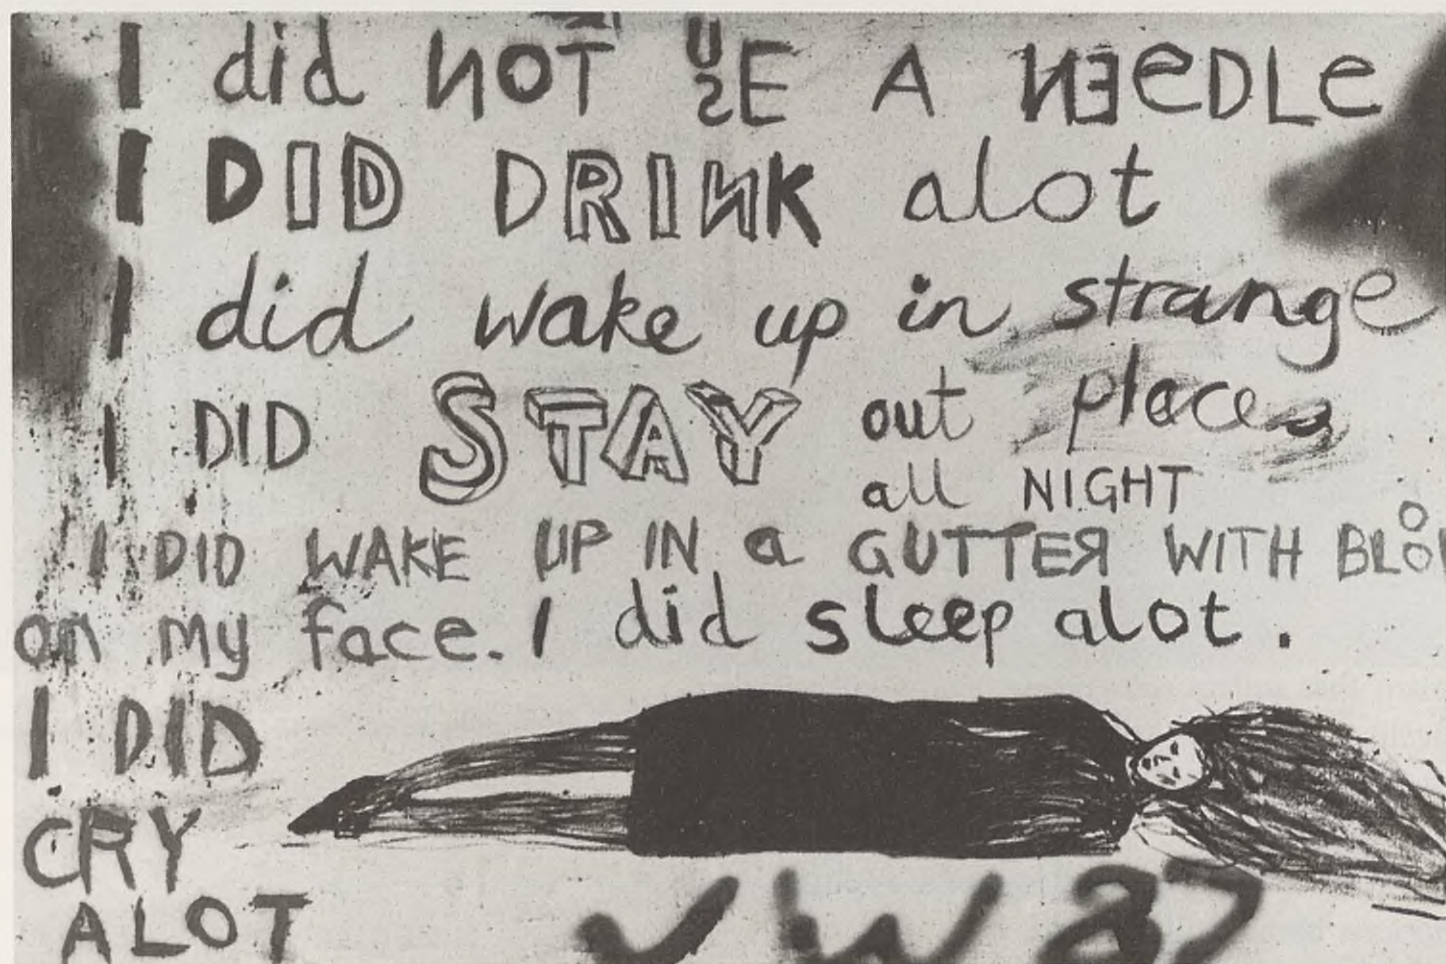 I did NOT USE A NEeDLe
I DID DRINK alot
I did wake up in strange
places
I DID STAY out
all NIGHT
I DID WAKE UP IN a GUTTER WITH BLOO
on my face. I did sleep alot.
I DID
CRY
ALOT